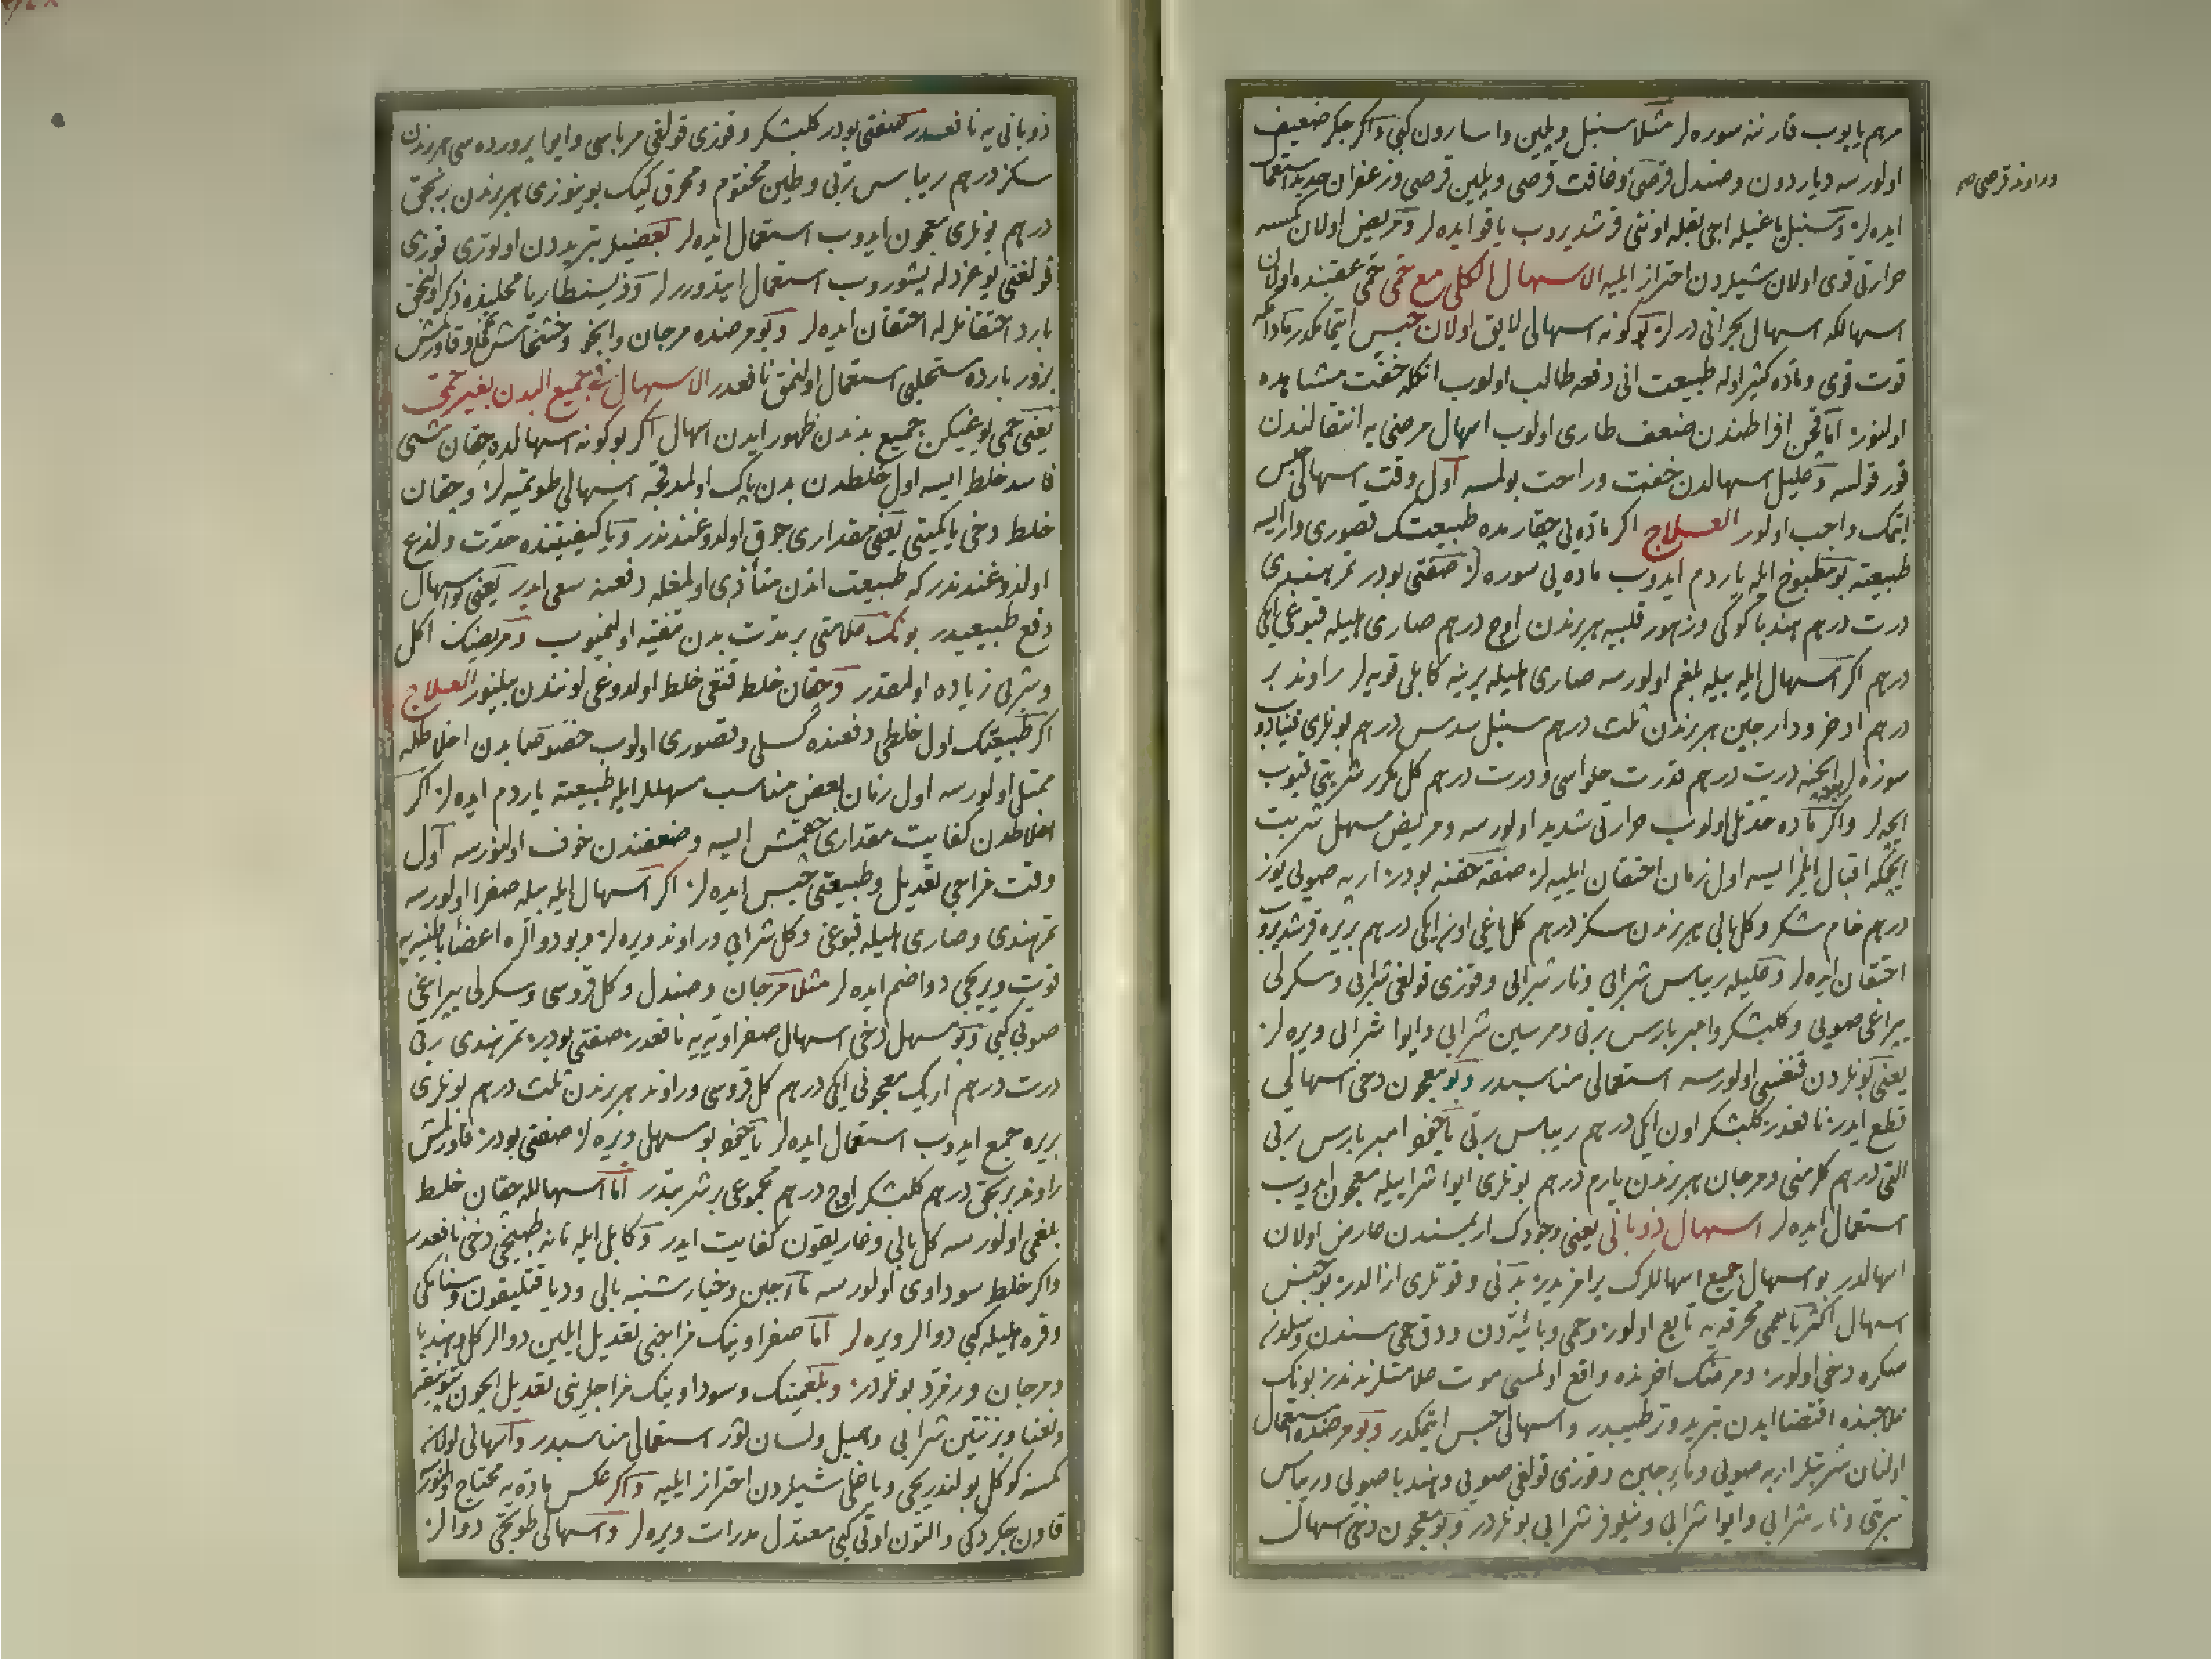 مرهم یاپوب قارننه سوره لر مثلا سنبل و پلین واسارون کبی واکر جکر ضعیف
اولورسه دیاردون و صندل قرصی و غافت قرصی و پلین قرصی وزعفران استعمال
وراوند قرصی صح
ایده لر وسنبل یاغیله اجی بقله اوننی قرشدیروب یاقو ایده لر ومریض اولان کمسه
حرارتی قوی اولان شیلردن احتراز ایلیه الاسهال الکلی مع حمی حمی عقبنده اولان
اسهالکه اسهال بحرانی درلر بو کونه اسهالی لایق اولان حبس ایتمامکدر مادامکه
قوت قوی وماده کثیر اوله طبیعت انی دفعه طالب اولوب انکله خفت مشاهده
اولنور اما قچن افراطندن ضعف طاری اولوب اسهال مرضی یه انتقالندن
قورقولسه وعلیل اسهالدن خفت وراحت بولمسه اول وقت اسهالی حبس
ایتمک واجب اولور العلاج اکر ماده یی چقارمده طبیعتک قصوری وار ایسه
طبیعته بو مطبوخ ایله یاردم ایدوب ماده یی سوره لر صفتی بودر تمر هندی
درت درهم هندبا کوکی وزهور قلبیه هر برندن اوج درهم صاری هلیله قبوغی ایکی
درهم اکر اسهال ایله بیله بلغم اولورسه صاری هلیله یرینه کابلی قویه لر راوند بر
درهم اذخر ودارچین هر برندن ثلث درهم سنبل سدس درهم بونلری قینادوب
سوزه لر ایچنه درت درهم قدرت حلواسی ودرت درهم کل مکرر شربتی قیوب
ایچه لر واکر ماده حدتلی اولوب حرارتی شدید اولورسه ومریض مسهل شربت
ایچمکه اقبال ایلمز ایسه اول زمان احتقان ایلیه لر صفة حقنه بودر ارپه صویی یوز
درهم خام شکر وکل بالی هر برندن سکز درهم کل یاغی اون ایکی درهم بریره قرشدیروب
احتقان ایده لر وعلیله ریباس شرابی ونار شرابی وقوزی قولغی شرابی وسکرلی
یپراغی صویی وکلبشکر وامبرباریس ربی ومرسین شرابی وایوا شرابی ویره لر
یعنی بونلردن قنغیسی اولورسه استعمالی مناسبدر وبو معجون دخی اسهالی
قطع ایدر نافعدر کلبشکر اون ایکی درهم ریباس ربی یاخود امبرباریس ربی
التی درهم کل ارمنی ومرجان هر برندن یارم درهم بونلری ایوا شرابیله معجون ایدوب
استعمال ایده لر اسهال ذوبانی یعنی وجودک اریمسندن عارض اولان
اسهالدر بو اسهال جمیع اسهاللرک یرامزیدر بدنی وقوتلری ازالدر بو جنس
اسهال اکثریا حمی محرقه یه تابع اولور وحمی وبائیه دن ودق حمی سندن
صکره دخی اولور ومرضک اخرنده واقع اولمسی موت علامتلرندندر بونک
علاجنده اقتضا ایدن تبرید وترطیبدر واسهالی حبس ایتمکدر وبو مرضده استعمال
اولنان شربتلر ارپه صویی وماء جبن وقوزی قولغی صویی وهندبا صویی وریباس
شربتی ونار شرابی وایوا شرابی ونیلوفر شرابی بونلردر وبو معجون دخی اسهال
ذوبانی یه نافعدر صفتی بودر کلبشکر وقوزی قولغی مرباسی وایوا پرورده سی هر برندن
سکز درهم ریباس ربی وطین مختوم ومحرق کیک بوینوزی هر برندن بر بچق
درهم بونلری معجون ایدوب استعمال ایده لر بعضیلر تبریددن اوتری قوزی
قولغنی یوغردله پشوروب استعمال ایتدوررلر وذیسنطاریا محلنده ذکر اولنجق
بارد احتقانلرله احتقان ایده لر وبو مرضده مرجان وانجو وخشخاش تخمی وقاورلمش
بزور بارده مستحلبی استعمال اولنمق نافعدر الاسهال فی جمیع البدن بغیر حمی
یعنی حمی یوغیکن جمیع بدندن ظهور ایدن اسهال اکر بو کونه اسهالده چقان شی
فاسد خلط ایسه اول خلطدن بدن پاک اولمدقجه اسهالی طوتمیه لر وچقان
خلط دخی یا کمیتی یعنی مقداری چوق اولدوغندندر ویا کیفیتنده حدت ولذع
اولدوغندندر که طبیعت اندن متأذی اولمغله دفعنه سعی ایدر یعنی بو اسهال
دفع طبیعیدر بونک علامتی بر مدت بدن تنقیه اولنمیوب ومریضک اکل
وشربی زیاده اولمقدر وچقان خلط قنغی خلط اولدوغی لونندن بیلنور العلاج
اکر طبیعتک اول خلطی دفعنده کسلی وقصوری اولوب خصوصا بدن اخلاطله
ممتلی اولورسه اول زمان بعض مناسب مسهللر ایله طبیعته یاردم ایده لر اکر
اخلاطدن کفایت مقداری چقمش ایسه وضعفندن خوف اولنورسه اول
وقت مزاجی تعدیل وطبیعتی حبس ایده لر اکر اسهال ایله بیله صفرا اولورسه
تمر هندی وصاری هلیله قبوغی وکل شرابی وراوند ویره لر وبو دوالره اعضا باطنیه یه
قوت ویریجی دوا ضم ایده لر مثلا مرجان وصندل وکل قروسی وسکرلی یپراغی
صویی کبی وبو مسهل دخی اسهال صفراوی یه نافعدر صفتی بودر تمر هندی ربی
درت درهم اریک معجونی ایکی درهم کل قروسی وراوند هر برندن ثلث درهم بونلری
بریره جمع ایدوب استعمال ایده لر یاخود بو مسهلی ویره لر صفتی بودر قاورلمش
راوند بر بچق درهم کلبشکر اوج درهم مجموعی بر شربتدر اما اسهالله چقان خلط
بلغمی اولورسه کل بالی وغاریقون کفایت ایدر وکابلی ایله نانه طبیخی دخی نافعدر
واکر خلط سوداوی اولورسه ماء جبن وخیارشنبه بالی ودیاقتلیقون وسنامکی
وقره هلیله کبی دوالر ویره لر اما صفراوینک مزاجنی تعدیل ایلین دوالر کل وهندبا
ومرجان وزمرد بونلردر وبلغمینک وسوداوینک مزاجلرینی تعدیل ایچون
ونعنا وبزنتین شرابی وهیل ولسان ثور استعمالی مناسبدر واسهالی اولان
کمسنه کوکل بولندریجی ویاغلی شیلردن احتراز ایلیه واکر عکس ماده یه محتاج اولنورسه
قاون چکردکی والتون اوتی کبی معتدل مدرات ویره لر واسهالی طوتیجی دوالر